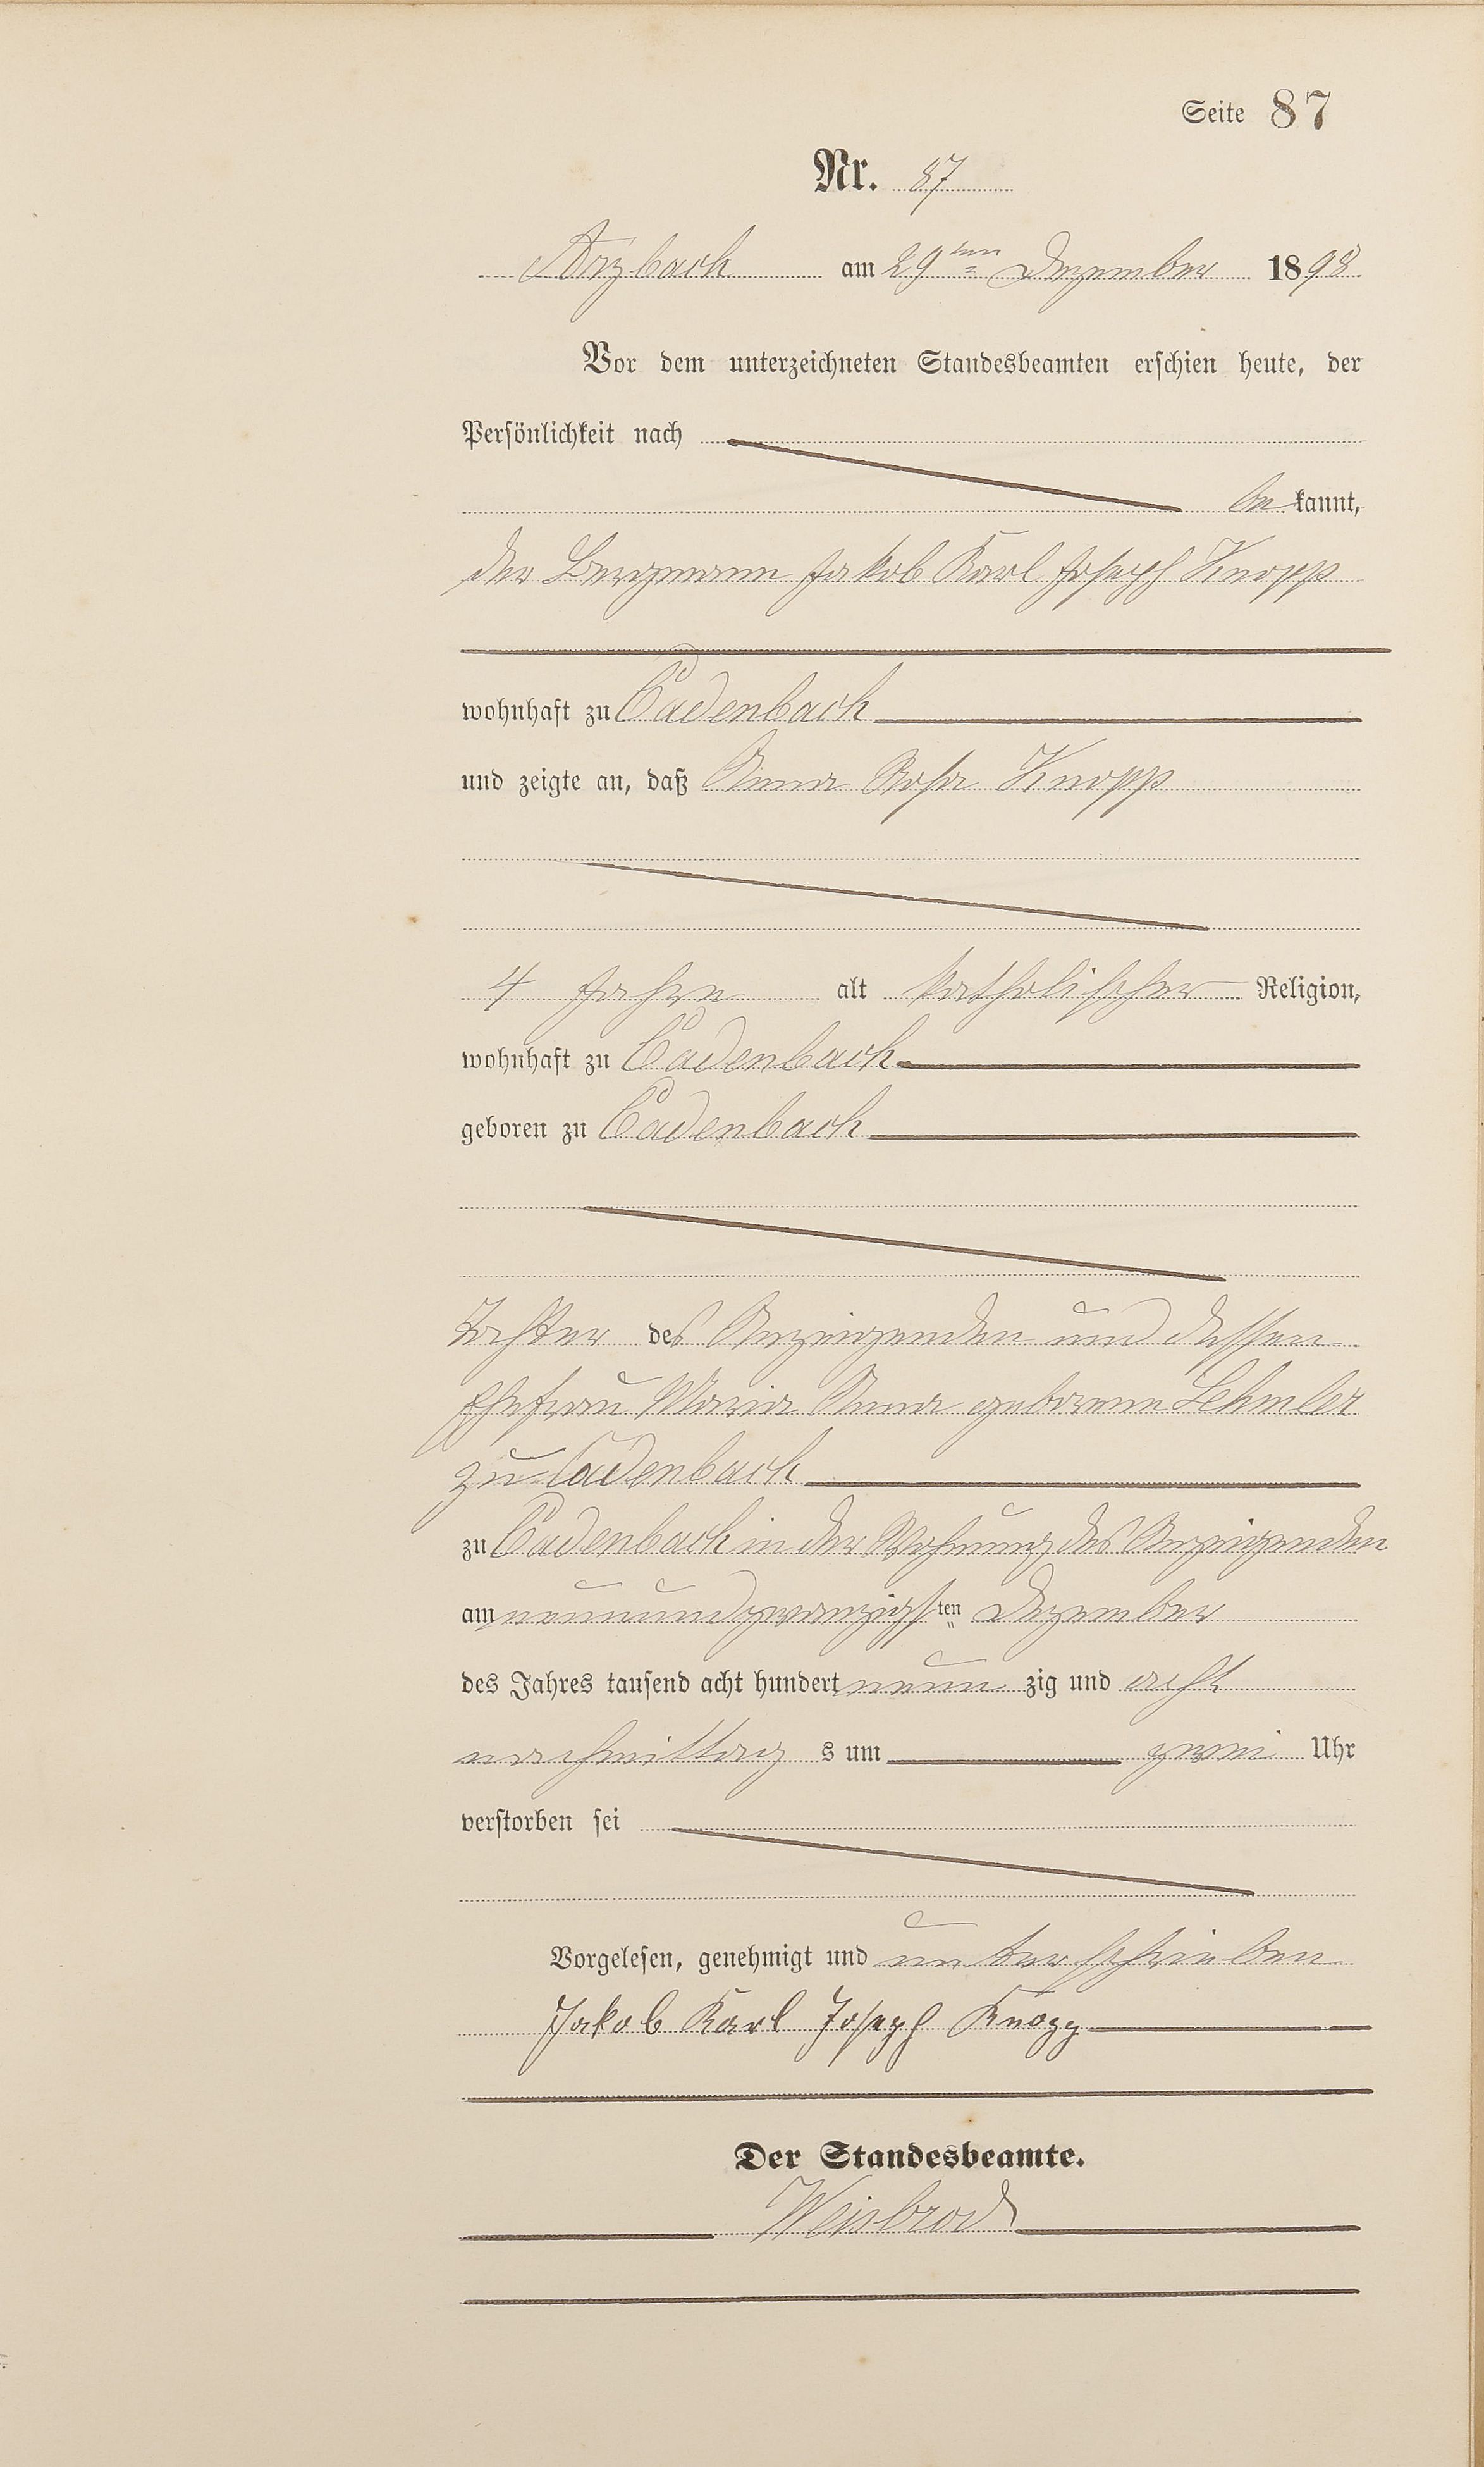 Seite 87
Nr. 87
Arzbach am 29ten Dezember 1898
Vor dem unterzeichneten Standesbeamten erschien heute, der
Persönlichkeit nach
bekannt,
der Bergmann Jakob Karl Joseph Knopp
wohnhaft zu Cadenbach
und zeigte an, daß Anna Rosa Knopp
4 Jahre alt katholischer Religion,
wohnhaft zu Cadenbach
geboren zu Cadenbach
Tochter des Anzeigenden und dessen
Ehefrau Maria Anna geborene Lehmler
zu Cadenbach
zu Cadenbach in der Wohnung des Anzeigenden
am neunundzwanzigsten Dezember
des Jahres tausend acht hundert neunzig und acht
nachmittags um zwei Uhr
verstorben sei
Vorgelesen, genehmigt und unterschrieben
Jakob Karl Joseph Knopp
Der Standesbeamte.
Weisbrod